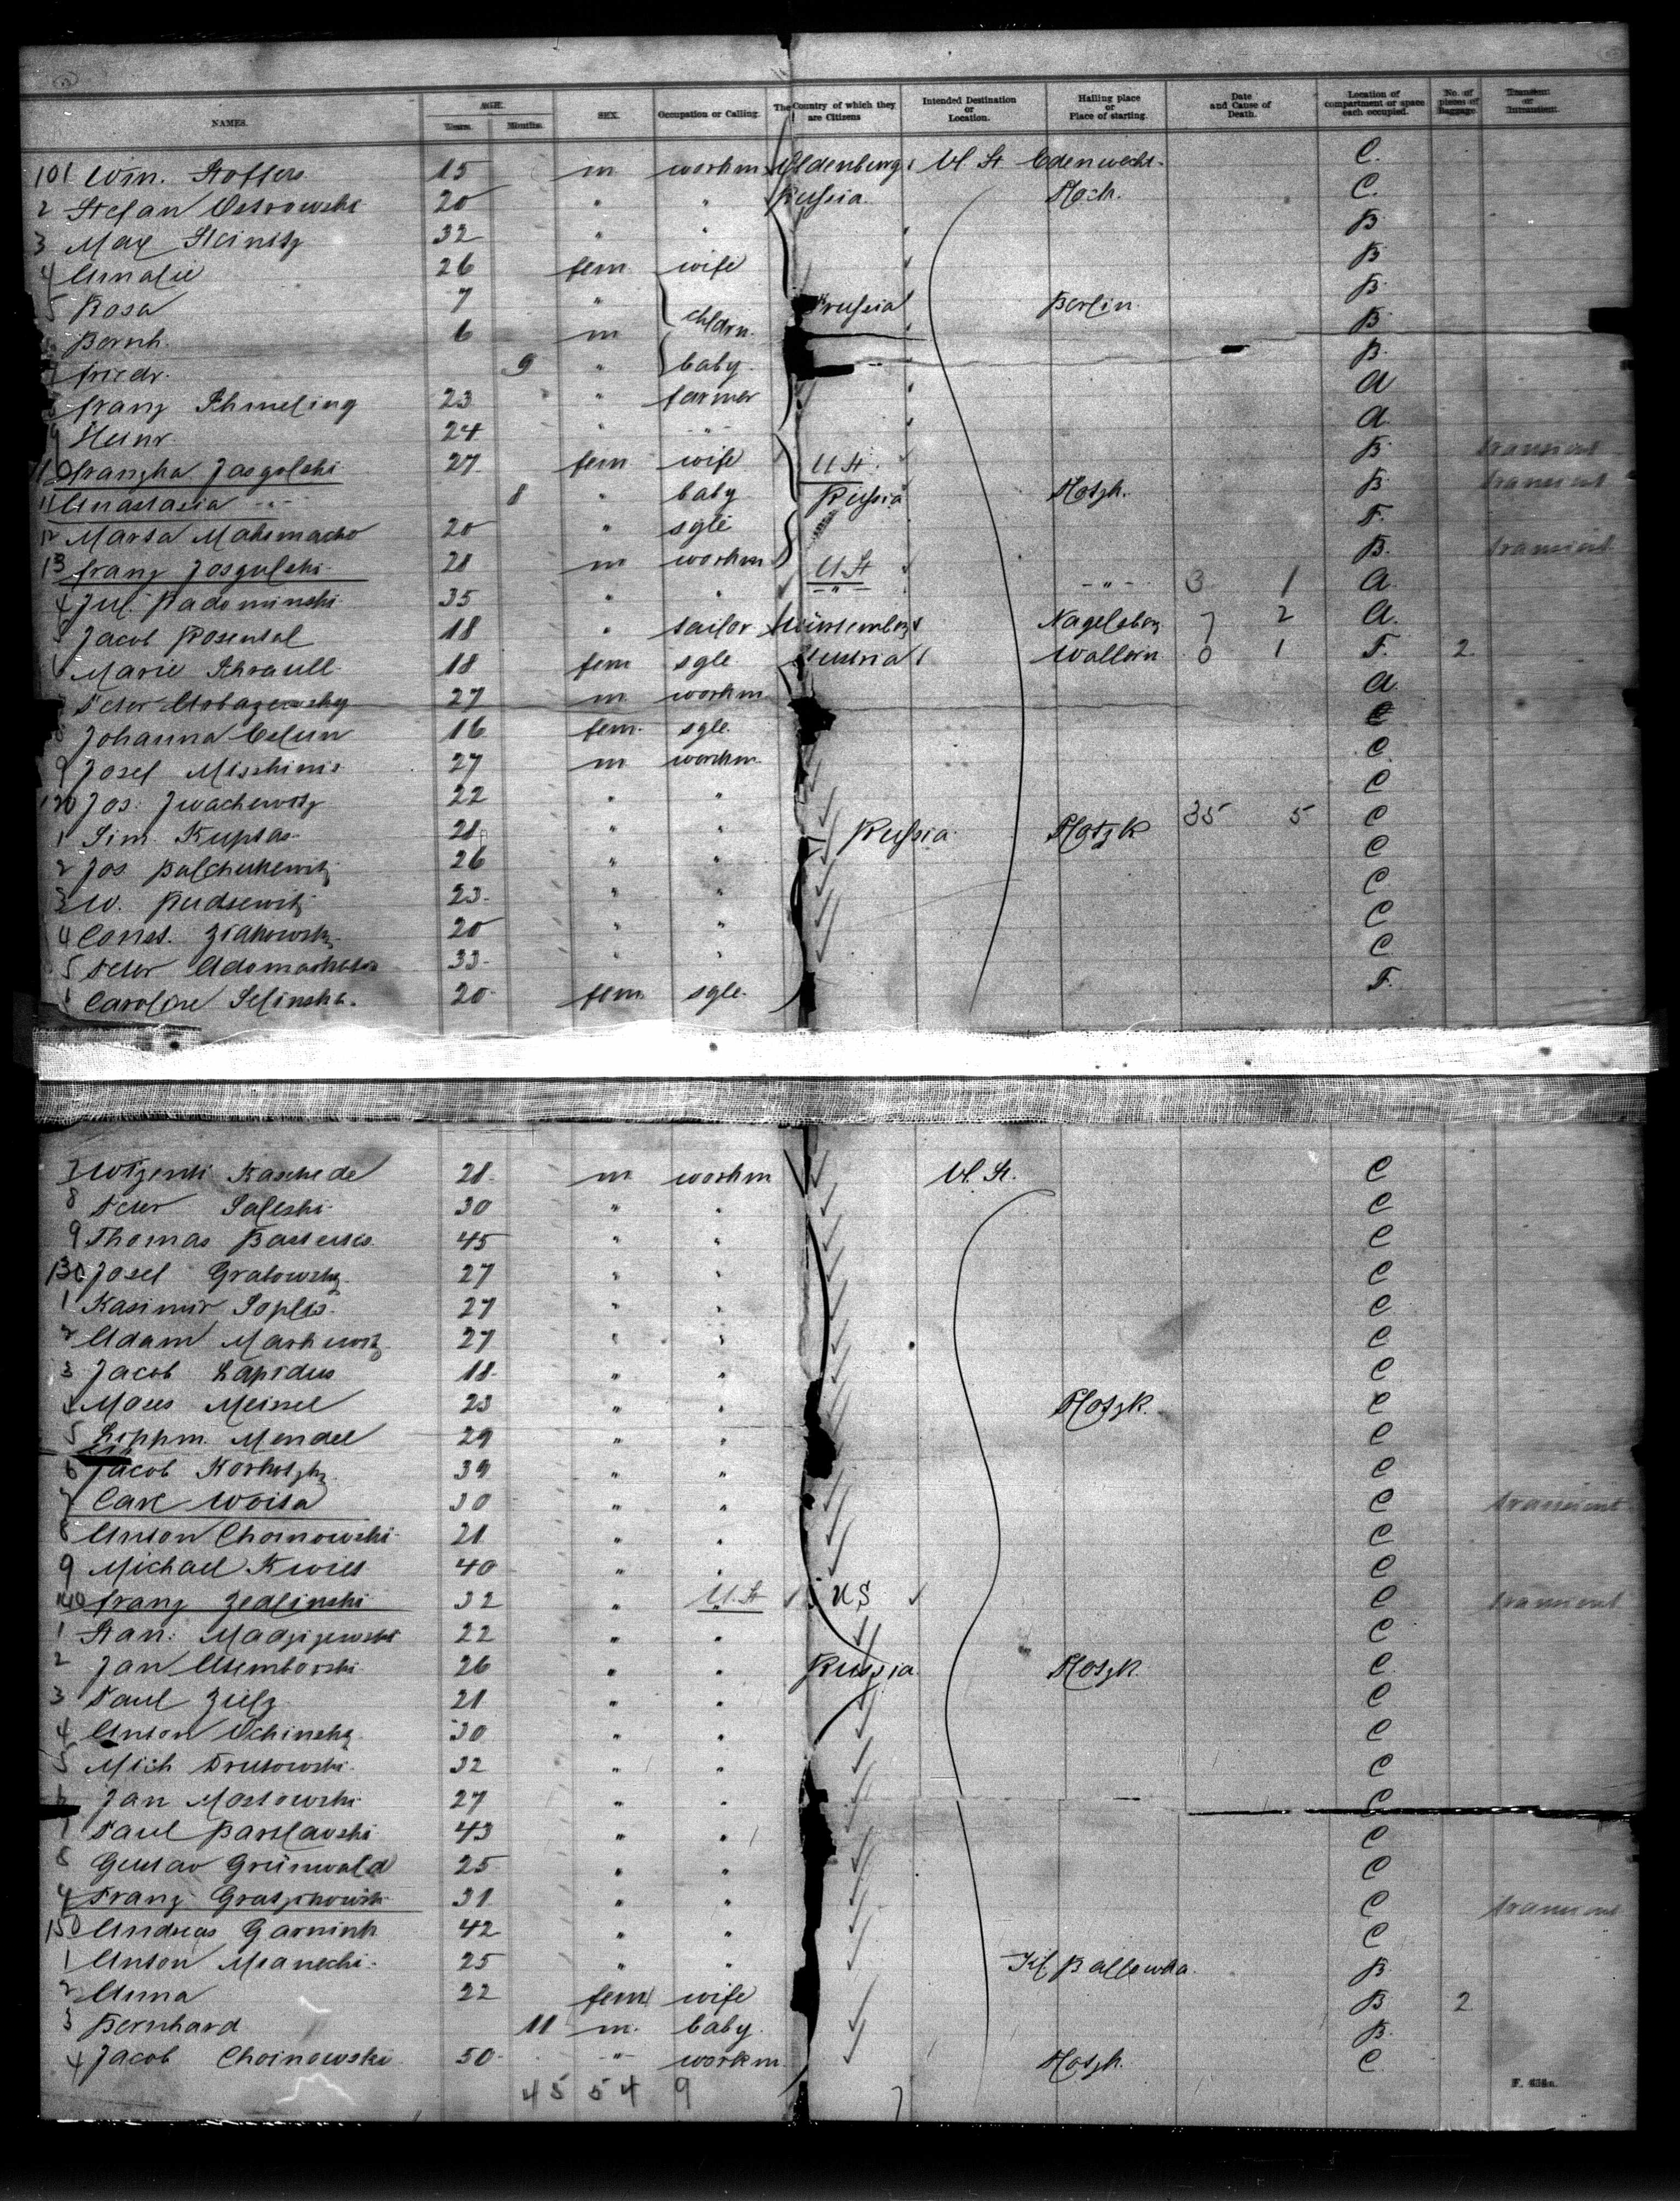 NAMES. AGE. Years. Months. SEX. Occupation or Calling. The Country of which they are Citizens Intended Destination or Location. Hailing place or Place of starting. Date and Cause of Death. Location of compartment or space each occupied. No. of pieces of Baggage Transient or Intransient.
101 Wm. Stoffers 15 m workm Oldenburg U. St Edenwecht C.
2 Stefan Ostrowski 20 " " Russia Plock. C.
3 Max Steinitz 32 " " B
4 Amalie 26 fem wife B
5 Rosa 7 " Prussia Berlin B
Bernh. 6 m childrn. B
7 Friedr. 9 " baby B.
Franz Schmeling 23 " farmer A
9 Heinr 24 " -"- A
110 Franzka Josgolski 27 fem wife U St. B transient
11 Anastasia -"- 8 " baby Russia Plotzk. B transient
12 Marta 20 " sgle F.
13 Franz Josgulski 21 m workm U St B. transient
4 Jul. Radominski 35 " " -"- -"- 3 1 A
5 Jacob Rosental 18 " tailor Würtemberg Nagelsberg 7 2 A.
6 Marie Schraull 18 fem sgle Austria Wallern 0 1 F. 2
Peter 27 m workm A
8 Johanna 16 fem. sgle. C
9 Josef Misskinis 27 m workm C
120 Jos. Iwachewitz 22 " " C
1 Sim. Kupsas 21 " " Russia Plotzk 35 5 C
2 Jos. 26 " " C
3 W. Rudsewitz 23 " " C
4 Const. 20 " " C
5 Peter 33 " " C
6 Caroline Selinska. 20 fem sgle. F.
7 Kaschede 21 m workm U. St. C
8 Peter Saleski 30 " " C
9 Thomas 45 " " C
130 Josef Grabowsky 27 " " C
1 Kasimir Soplis 27 " " C
2 Adam Markewitz 27 " " C
3 Jacob Lapidus 18 " " C
4 Moses Meissel 23 " " Plotzk. C
5 Lippm. Mendel 29 " " C
6 Jacob 39 " " C
7 Carl Woisa 30 " " C transient
8 Anton Choinowski 21 " " C
9 Michael Kwies 40 " " C
140 Franz Zedlinski 32 " U. St U S C transient
1 Stan. 22 " " C
2 Jan 26 " " Russia Plotzk. C
3 Paul Zielz 21 " " C
4 Anton Ochinsky 30 " " C
5 Mich Prusowski 32 " " C
6 Jan Mostowski 27 " " C
7 Paul Barslavski 43 " " C
8 Gustav Grünwald 25 " " C
9 Franz 31 " " C transient
150 Andreas Garnink 42 " " C
1 Anton Mianecki 25 " " Kl. Ballowka B
2 Anna 22 fem wife B 2
3 Bernhard 11 m. baby B.
4 Jacob Choinowski 50 -"- workm Plotzk. C
45 54 9